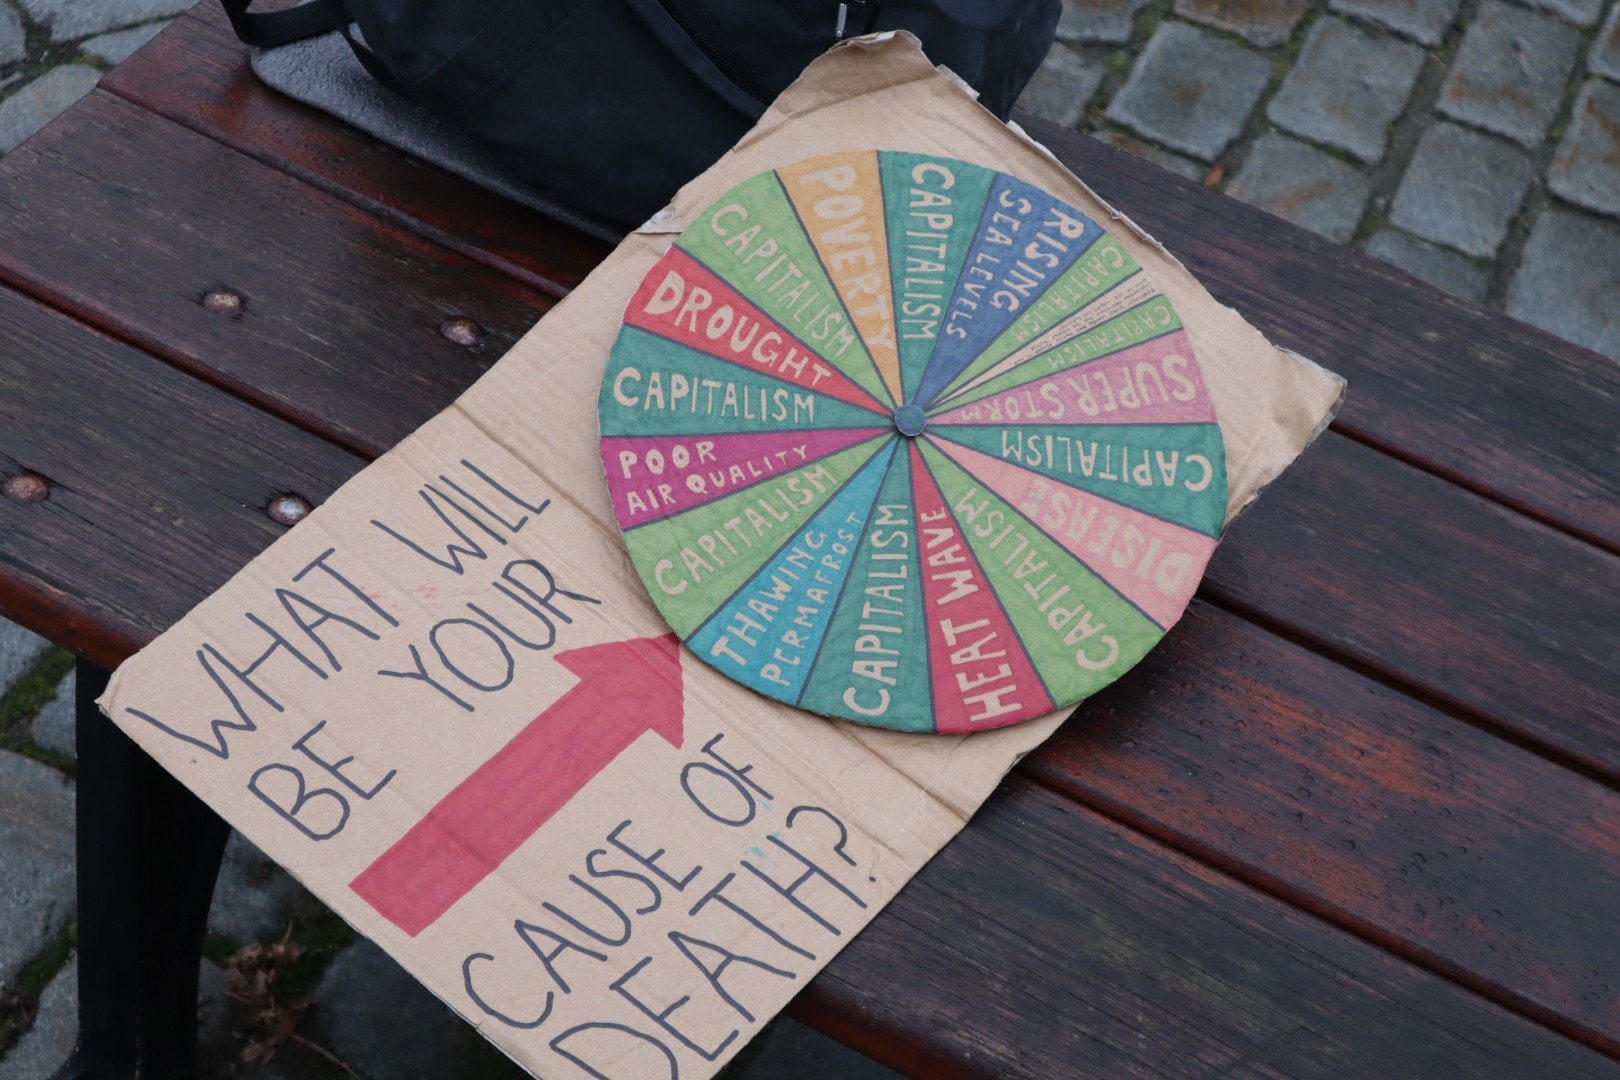 WHAT WILL
BE YOUR
CAUSE OF
DEATH?
CAPITALISM
RISING
SEA LEVELS
CAPITALISM
CAPITALISM
SUPER STORM
CAPITALISM
DISEASE
CAPITALISM
HEAT WAVE
CAPITALISM
THAWING
PERMAFROST
CAPITALISM
POOR
AIR QUALITY
CAPITALISM
DROUGHT
CAPITALISM
POVERTY